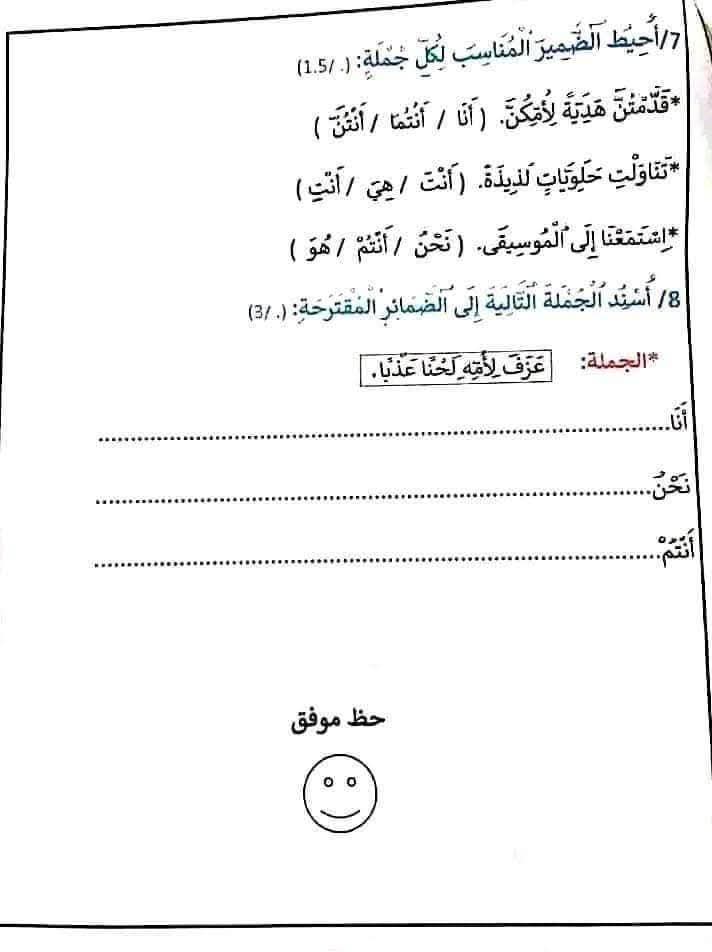 7/أُحِيْط الضَّمِيرَ الْمُنَاسِبَ لِكُلِّ جُمْلَةٍ: (. /1.5)
*قَدَّمْتُنَّ هَدِيَّةً لِأُمِّكُنَّ. ( أَنَا / أَنْتُمَا / أَنْتُنَّ )
*تَنَاوَلْتِ حَلَوِيَّاتٍ لَذِيذَةً. ( أَنْتَ / هِيَ / أَنْتِ )
*اِسْتَمَعْنَا إِلَى الْمُوسِيقَى. ( نَحْنُ / أَنْتُمْ / هُوَ )
8/ أُسْنِد الْجُمْلَةَ التَّالِيَةَ إِلَى الضَّمَائِرِ الْمُقْتَرَحَةِ: (. /3)
*الجملة: عَزَفَ لِأُمِّهِ لَحْنًا عَذْبًا.
أَنَا........................................................................
نَحْنُ......................................................................
أَنْتُمْ......................................................................
حظ موفق